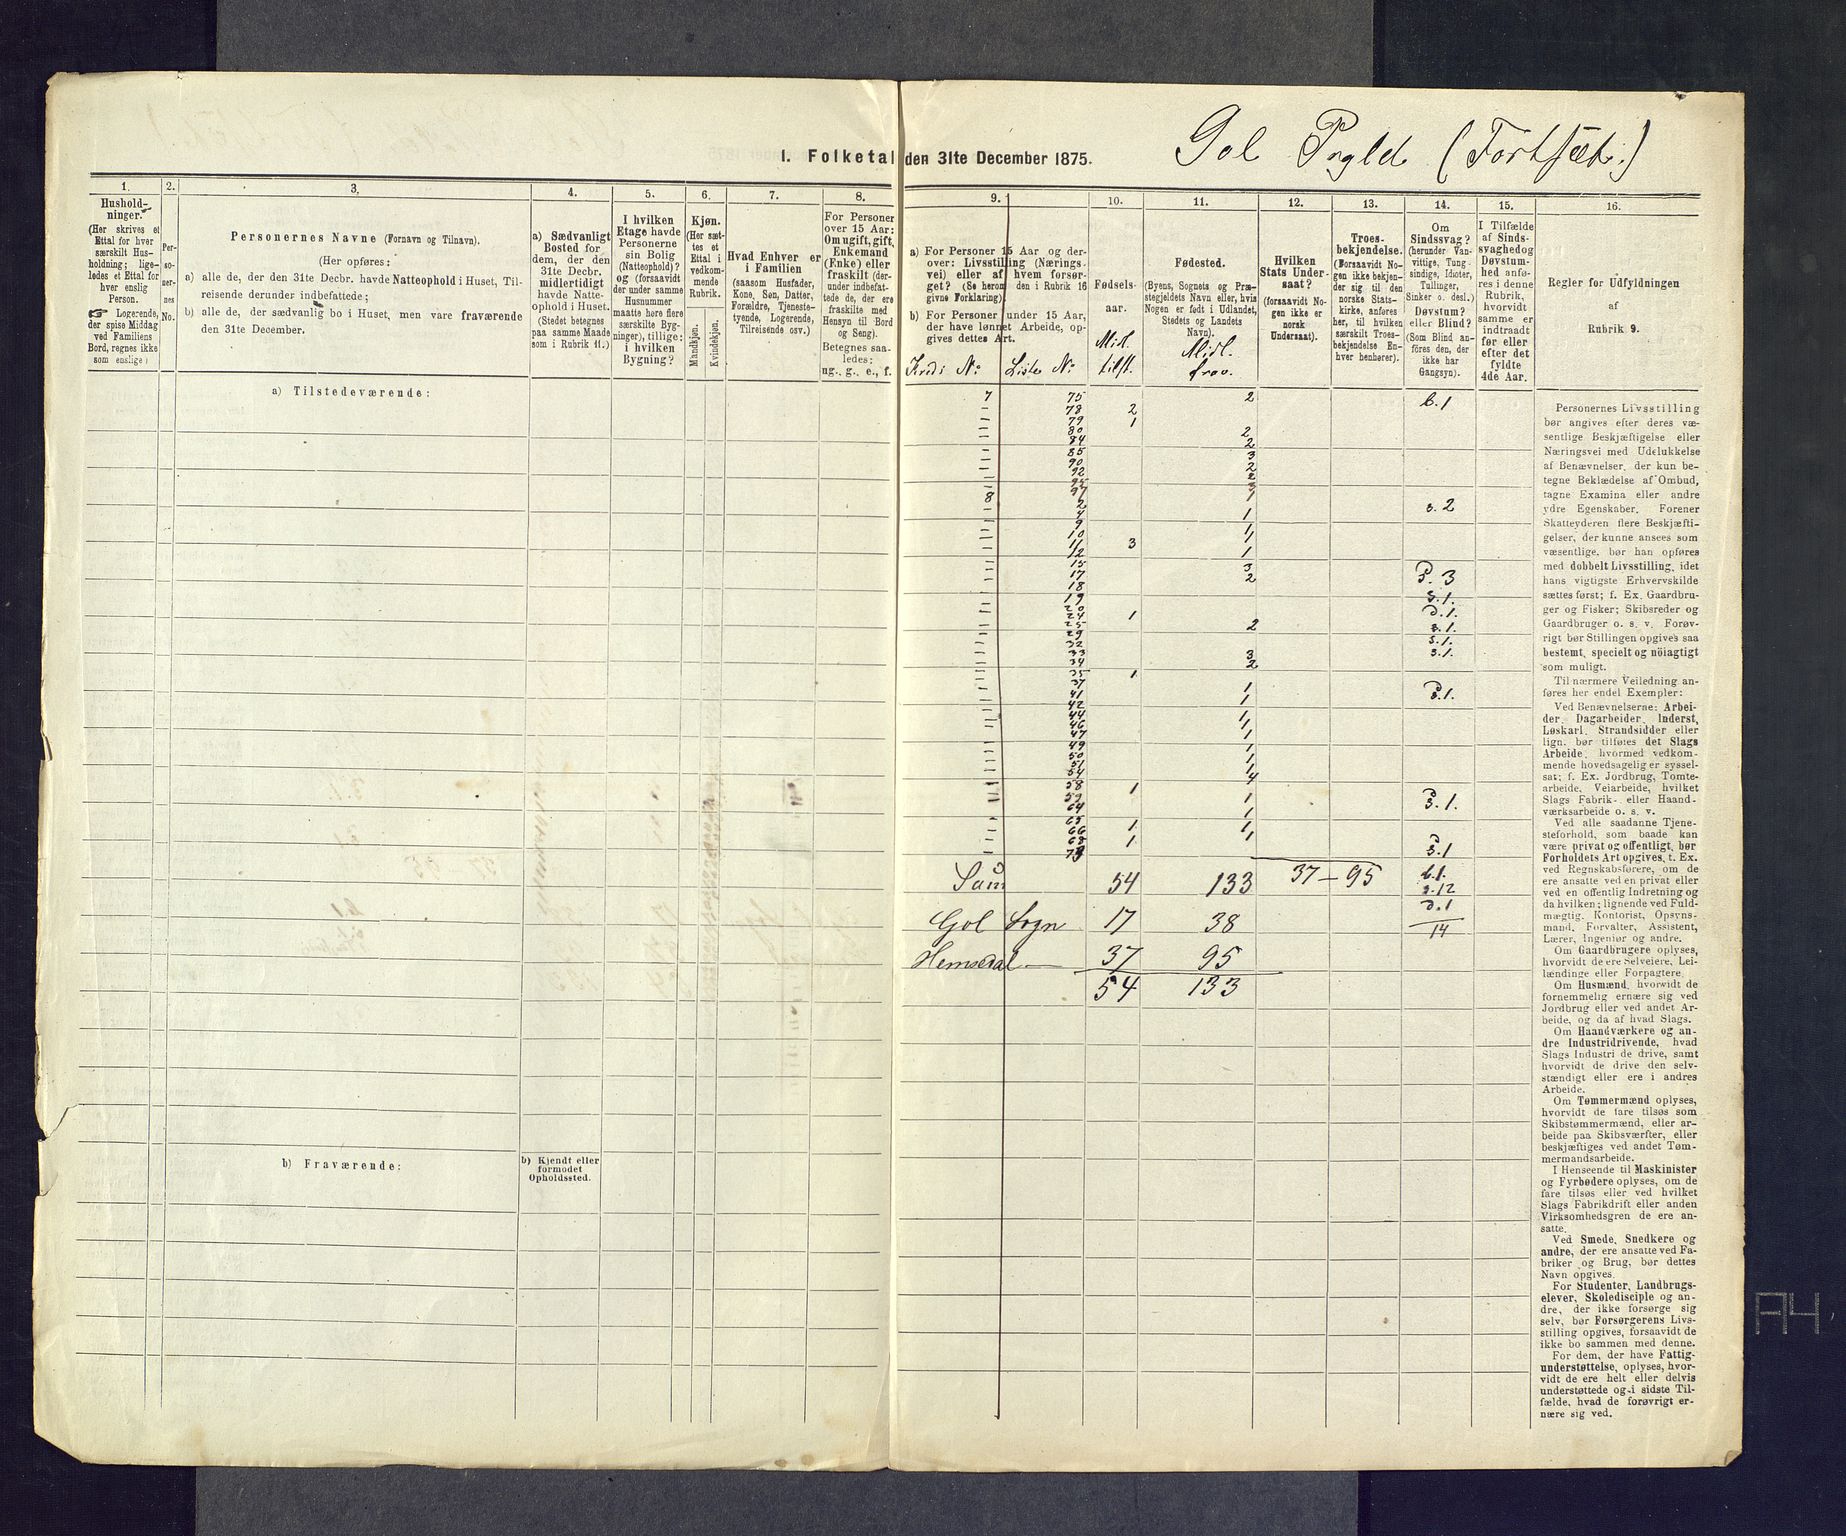 Gol Prgld (Fortsæt.)
I. Folketal den 31te December 1875.
1.
Hushold-
ninger.
(Her skrives et
Ettal for hver
særskilt Hus-
holdning; lige-
ledes et Ettal for
hver enslig
Person.
☞ Logerende,
der spise Middag
ved Familiens
Bord, regnes ikke
som enslige.)
2.
Per-
so-
ner-
nes
No.
3.
Personernes Navne (Fornavn og Tilnavn).
(Her opføres:
a) alle de, der den 31te Decbr. havde Natteophold i Huset, Til-
reisende derunder indbefattede;
b) alle de, der sædvanlig bo i Huset, men vare fraværende
den 31te December.
4.
a) Sædvanligt
Bosted for
dem, der den
31te Decbr.
midlertidigt
havde Natte-
ophold i Huset.
(Stedet betegnes
paa samme Maade
som i Rubrik 11.)
5.
I hvilken
Etage havde
Personerne
sin Bolig
(Natteophold)?
og (forsaavidt
der under samme
Husnummer
maatte høre flere
særskilte Byg-
ninger), tillige:
i hvilken
Bygning?
6.
Kjøn.
(Her sæt-
tes et
Ettal i
vedkom-
mende
Rubrik.
Mandkjøn.
Kvindekjøn.
7.
Hvad Enhver er
i Familien
(saasom Husfader,
Kone, Søn, Datter,
Forældre, Tjeneste-
tyende, Logerende,
Tilreisende osv.)
8.
For Personer
over 15 Aar:
Om ugift, gift,
Enkemand
(Enke) eller
fraskilt (der-
under indbefat-
tede de, der ere
fraskilte med
Hensyn til Bord
og Seng).
Betegnes saa-
ledes:
ug., g., e., f.
9.
a) For Personer 15 Aar og der-
over: Livsstilling (Nærings-
vei) eller af hvem forsør-
get? (Se herom den i Rubrik 16
givne Forklaring).
b) For Personer under 15 Aar,
der have lønnet Arbeide, op-
gives dettes Art.
Kreds No: Liste No:
10.
Fødsels-
aar.
Midl.
tilst.
11.
Fødested.
(Byens, Sognets og Præ-
stegjeldets Navn eller, hvis
Nogen er født i Udlandet,
Stedets og Landets
Navn).
Midl.
frav.
12.
Hvilken
Stats Under-
saat?
(forsaavidt No-
gen ikke er
norsk
Undersaat).
13.
Troes-
bekjendelse.
(Forsaavidt No-
gen ikke bekjen-
der sig til den
norske Stats-
kirke, anføres
her, til hvilken
særskilt Troes-
bekjendelse En-
hver henhører).
14.
Om
Sindssvag?
(herunder Van-
vittige, Tung-
sindige, Idioter,
Tullinger,
Sinker o. desl.)
Døvstum?
eller Blind?
(Som Blind an-
føres den, der
ikke har
Gangsyn).
15.
I Tilfælde
af Sinds-
svaghed og
Døvstum-
hed anfø-
res i denne
Rubrik,
hvorvidt
samme er
indtraadt
før eller
efter det
fyldte
4de Aar.
16.
Regler for Udfyldningen
af
Rubrik 9.
a) Tilstedeværende:
7 75 2 b.1
— 78 2
— 79 1
— 80 2
— 84 2
— 85 3
— 90 2
— 92 2
— 95 3
— 97 1
8 2 s.2
— 4 1
— 9
— 10 1
— 11 3 1
— 12 1
— 15 3
— 17 2
— 18
— 19
— 20
— 24 1
— 25 2
— 29
— 32
— 33 3
— 34 2
— 35 1
— 37
— 41 1
— 42 1
— 44 1
— 46 1
— 47 1
— 49
— 50 1
— 51 1
— 54 4
— 58 1
— 59 1
— 64
— 65 1
— 66 1 1
— 68 1 1
— 73
54 133 37 — 95 b.1
s.12
d.1
14
Gol Sogn 17 38
Hemsedal — 37 95
54 133
b) Fraværende:
b) Kjendt eller
formodet
Opholdssted.
Personernes Livsstilling
bør angives efter deres væ-
sentlige Beskjæftigelse eller
Næringsvei med Udelukkelse
af Benævnelser, der kun be-
tegne Beklædelse af Ombud,
tagne Examina eller andre
ydre Egenskaber. Forener
Skatteyderen flere Beskjæfti-
gelser, der kunne ansees som
væsentlige, bør han opføres
med dobbelt Livsstilling, idet
hans vigtigste Erhvervskilde
sættes først; f. Ex. Gaardbru-
ger og Fisker; Skibsreder og
Gaardbruger o. s. v. Forøv-
rigt bør Stillingen opgives saa
bestemt, specielt og nöiagtigt
som muligt.
Til nærmere Veiledning an-
føres her endel Exempler:
Ved Benævnelserne: Arbei-
der, Dagarbeider, Inderst,
Løskarl, Strandsidder eller
lign. bør tilføres det Slags
Arbeide, hvormed vedkom-
mende hovedsagelig er syssel-
sat; f. Ex. Jordbrug, Tomte-
arbeide, Veiarbeide, hvilket
Slags Fabrik- eller Haand-
værksarbeide o. s. v.
Ved alle saadanne Tjene-
steforhold, som baade kan
være privat og offentligt, bør
Forholdets Art opgives, t. Ex.
ved Regnskabsførere, om de
ere ansatte ved en privat eller
ved en offentlig Indretning og
da hvilken; lignende ved Fuld-
mægtig, Kontorist, Opsyns-
mand, Forvalter, Assistent,
Lærer, Ingeniør og andre.
Om Gaardbrugere oplyses,
hvorvidt de ere Selveiere, Lei-
lændinge eller Forpagtere.
Om Husmænd, hvorwidt de
fornemmelig ernære sig ved
Jordbrug eller ved andet Ar-
beide, og da af hvad Slags.
Om Haandværkere og an-
dre Industridrivende, hvad
Slags Industri de drive, samt
hvorvidt de drive den selv-
stændigt eller ere i andres
Arbeide.
Om Tømmermænd oplyses,
hvorvidt de fare tilsøs som
Skibstømmermænd, eller ar-
beide paa Skibsværfter, eller
beskjæftiges ved andet Tøm-
mermandsarbeide.
I Henseende til Maskinister
og Fyrbødere oplyses, om de
fare tilsøs eller ved hvilket
Slags Fabrikdrift eller anden
Virksomhedsgren de ere an-
satte.
Ved Smede, Snedkere og
andre, der ere ansatte ved Fa-
briker og Brug, bør dettes
Navn opgives.
For Studenter, Landbrugs-
elever, Skoledisciple og an-
dre, der ikke forsørge sig
selv, bør Forsørgerens Livs-
stilling opgives, forsaavidt de
ikke bo sammen med denne.
For dem, der have Fattig-
understøttelse, oplyses, hvor-
vidt de ere helt eller delvis
understøttede og i sidste Til-
fælde, hvad de forøvrigt er-
nære sig ved.
A4